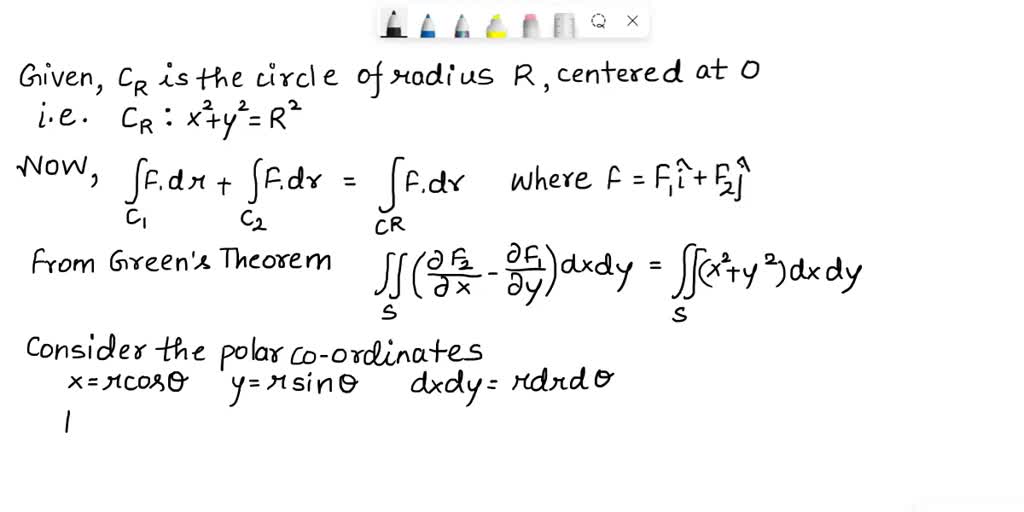 Given, C_R is the circle of radius R, centered at O
i.e. C_R : x²+y²=R²
Now, ∫_{C_1} F.dr + ∫_{C_2} F.dr = ∫_{CR} F.dr where F = F_1 î + F_2 ĵ
From Green's Theorem ∬_S (∂F_2/∂x - ∂F_1/∂y) dxdy = ∬_S (x²+y²) dx dy
Consider the polar co-ordinates
x=rcosθ y=rsinθ dxdy=rdrdθ